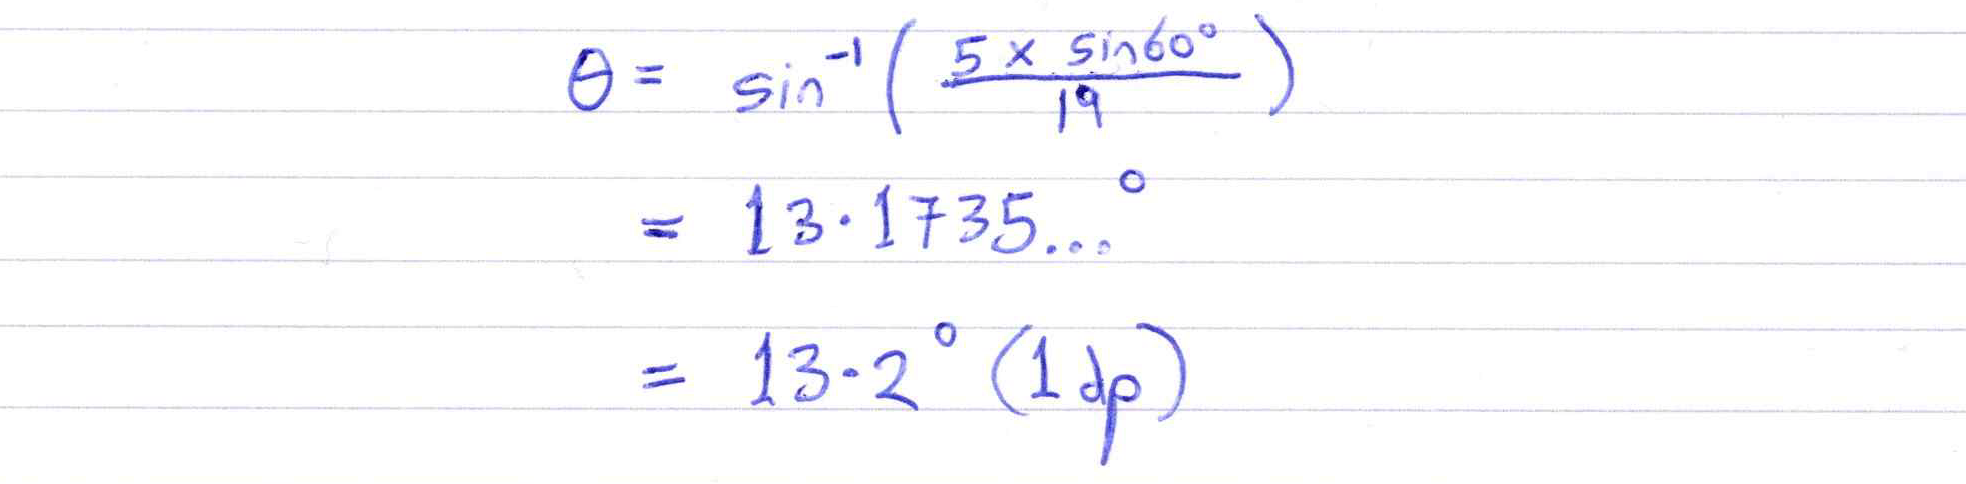 θ = sin⁻¹(5 × sin60° / 19)
= 13·1735...°
= 13·2° (1dp)